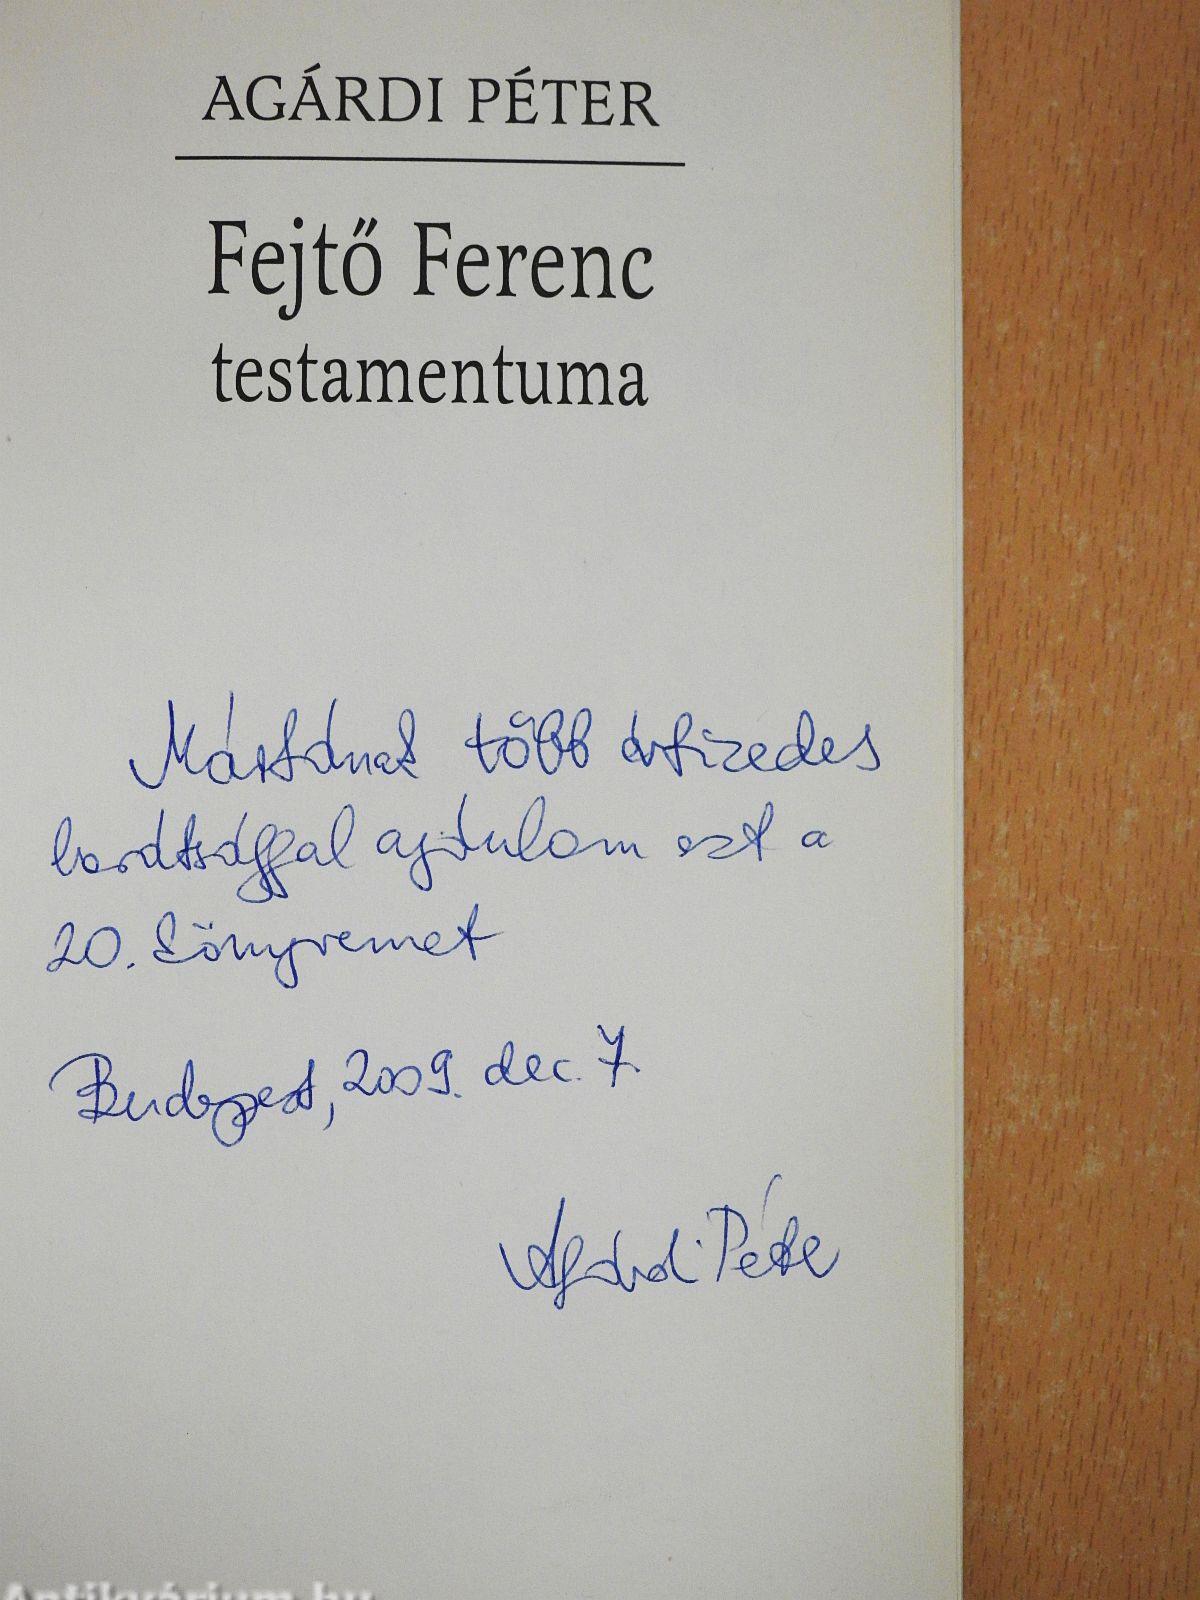 AGÁRDI PÉTER
Fejtő Ferenc
testamentuma
Mártának több évtizedes
barátsággal ajánlom ezt a
20. könyvemet
Budapest, 2009. dec. 7.
Agárdi Péter
Antikvárium.hu